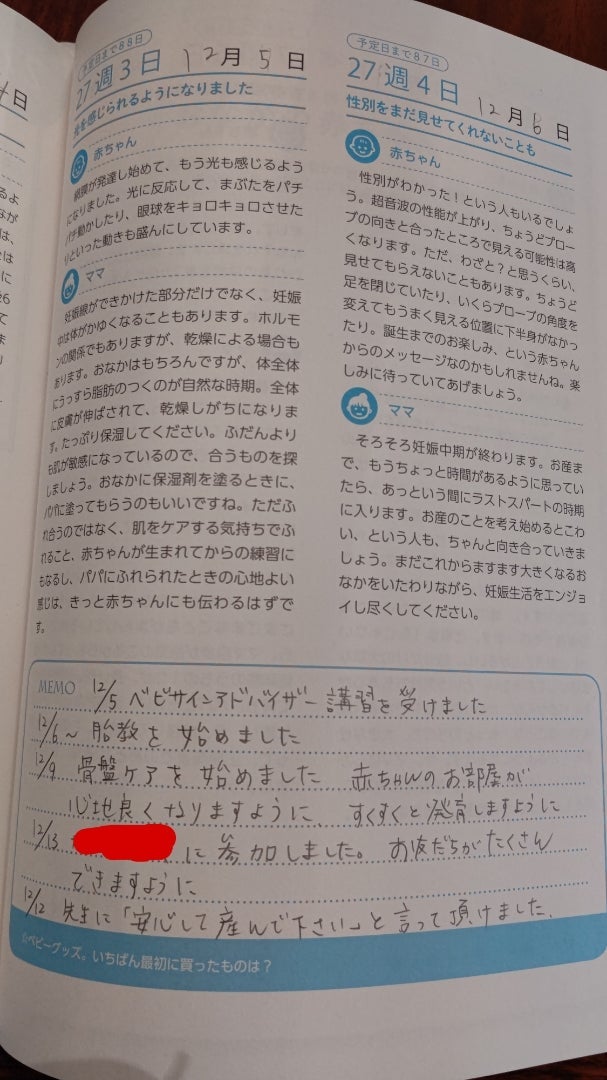 日
予定日まで88日
27週3日 12月5日
光を感じられるようになりました
赤ちゃん
網膜が発達し始めて、もう光も感じるよう
になりました。光に反応して、まぶたをパチ
パチ動かしたり、眼球をキョロキョロさせた
りといった動きも盛んにしています。
ママ
妊娠線ができかけた部分だけでなく、妊娠
中は体がかゆくなることもあります。ホルモ
ンの関係でもありますが、乾燥による場合も
あります。おなかはもちろんですが、体全体
にうっすら脂肪のつくのが自然な時期。全体
に皮膚が伸ばされて、乾燥しがちになりま
す。たっぷり保湿してください。ふだんより
も肌が敏感になっているので、合うものを探
しましょう。おなかに保湿剤を塗るときに、
パパに塗ってもらうのもいいですね。ただふ
れ合うのではなく、肌をケアする気持ちでふ
れること、赤ちゃんが生まれてからの練習に
もなるし、パパにふれられたときの心地よい
感じは、きっと赤ちゃんにも伝わるはずで
す。
予定日まで87日
27週4日 12月6日
性別をまだ見せてくれないことも
赤ちゃん
性別がわかった！という人もいるでしょ
う。超音波の性能が上がり、ちょうどプロー
ブの向きと合ったところで見える可能性は高
くなります。ただ、わざと？と思うくらい、
見せてもらえないこともあります。ちょうど
足を閉じていたり、いくらプローブの角度を
変えてもうまく見える位置に下半身がなかっ
たり。誕生までのお楽しみ、という赤ちゃん
からのメッセージなのかもしれませんね。楽
しみに待っていてあげましょう。
ママ
そろそろ妊娠中期が終わります。お産ま
で、もうちょっと時間があるように思ってい
たら、あっという間にラストスパートの時期
に入ります。お産のことを考え始めるとこわ
い、という人も、ちゃんと向き合っていきま
しょう。まだこれからますます大きくなるお
なかをいたわりながら、妊娠生活をエンジョ
イし尽くしてください。
MEMO 12/5 ベビサインアドバイザー講習を受けました
12/6〜 胎教を始めました
12/9 骨盤ケアを始めました 赤ちゃんのお部屋が
心地良くなりますように、すくすくと発育しますように
12/13 に参加しました。お友だちがたくさん
できますように
12/12 先生に「安心して産んで下さい」と言って頂けました、
☆ベビーグッズ。いちばん最初に買ったものは？